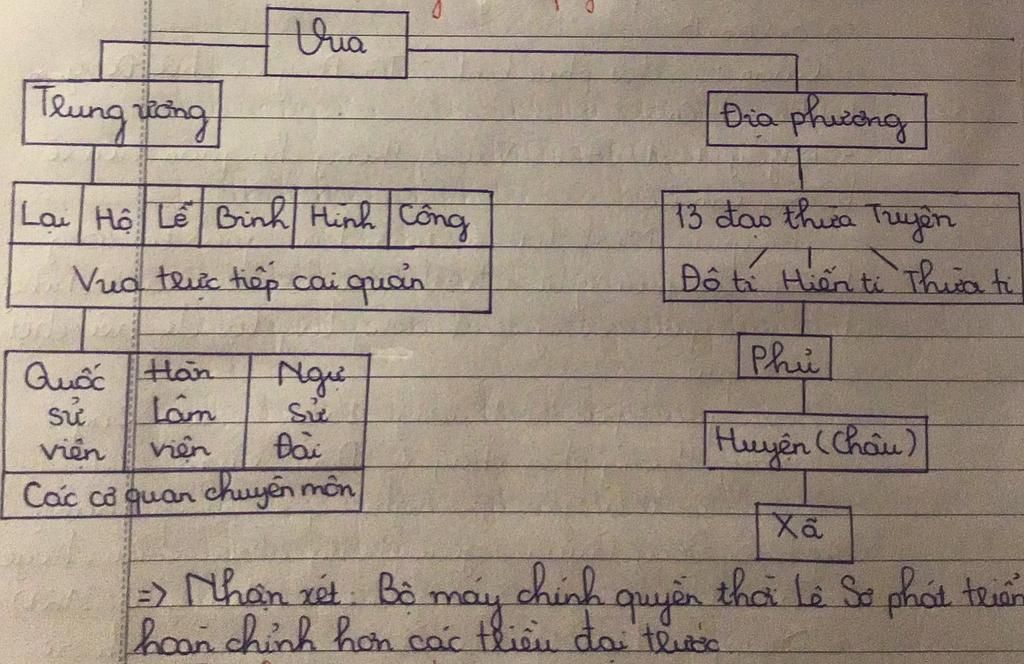 Vua
Trung ương
Địa phương
Lại Hộ Lễ Binh Hình Công
Vua trực tiếp cai quản
13 đạo thừa Tuyên
Đô ti Hiến ti Thừa ti
Phủ
Huyện (Châu)
Xã
Quốc sử viện
Hàn Lâm viện
Ngự Sử Đài
Các cơ quan chuyên môn
=> Nhận xét: Bộ máy chính quyền thời Lê Sơ phát triển
hoàn chỉnh hơn các triều đại trước